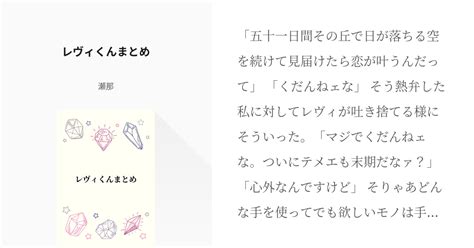 レヴィくんまとめ
瀬那
レヴィくんまとめ
「五十一日間その丘で日が落ちる空
を続けて見届けたら恋が叶うんだっ
て」 「くだんねェな」 そう熱弁した
私に対してレヴィが吐き捨てる様に
そういった。「マジでくだんねェ
な。ついにテメエも末期だなァ？」
「心外なんですけど」 そりゃあどん
な手を使ってでも欲しいモノは手...